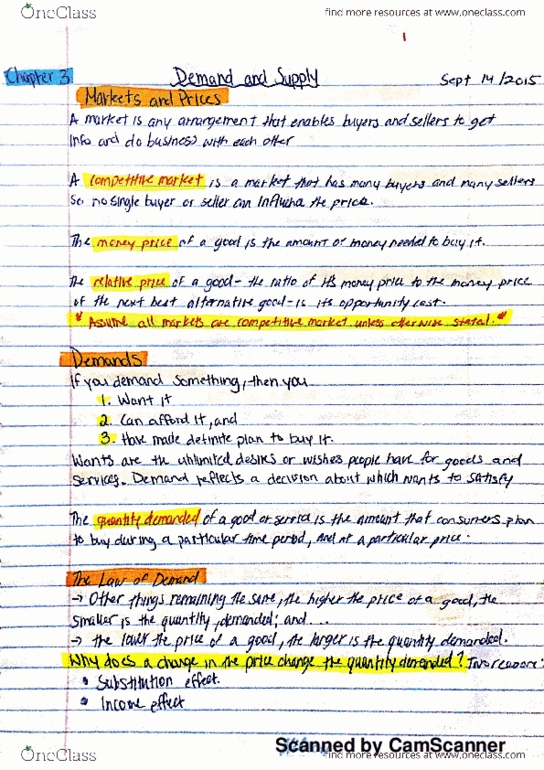 OneClass
find more resources at www.oneclass.com
1
Chapter 3
Demand and Supply
Sept 14/2015
Markets and Prices
A market is any arrangement that enables buyers and sellers to get
info and do business with each other
A competitive market is a market that has many buyers and many sellers
so no single buyer or seller can influence the price.
The money price of a good is the amount of money needed to buy it.
The relative price of a good - the ratio of its money price to the money price
of the next best alternative good - is its opportunity cost.
* Assume all markets are competitive market unless otherwise stated. *
Demands
If you demand something, then you
1. Want it
2. Can afford it, and
3. Have made definite plan to buy it.
Wants are the unlimited desires or wishes people have for goods and
services. Demand reflects a decision about which wants to satisfy
The quantity demanded of a good or service is the amount that consumers plan
to buy during a particular time period, and at a particular price.
The Law of Demand
→ Other things remaining the same, the higher the price of a good, the
smaller is the quantity demanded; and...
→ the lower the price of a good, the larger is the quantity demanded.
Why does a change in the price change the quantity demanded? Two reasons:
• Substitution effect
• Income effect
Scanned by CamScanner
OneClass
find more resources at www.oneclass.com